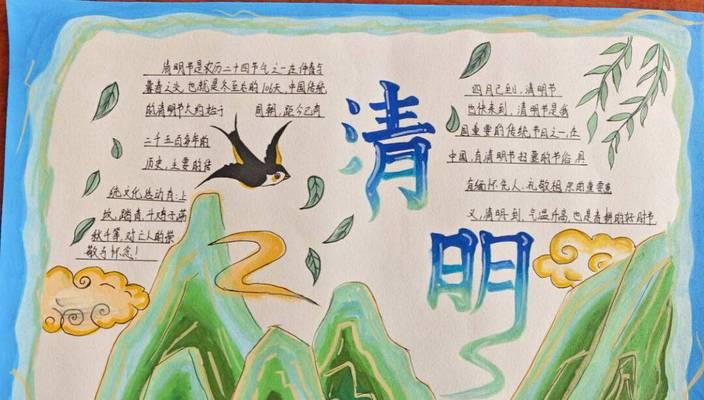 清明节是农历二十四节气之一在仲春与
暮春之交,也就是冬至后的106天,中国传统
的清明节大约始于周朝,距今已有
二千五百多年的
历史,主要的传
统文化活动有:上
坟,踏青,斗鸡子荡
秋千等,对亡人的
敬与怀念!
清明
四月已到,清明节
也快来到,清明节是我
国重要的传统节日之一,在
中国,有清明节扫墓的节俗,用
怀先人,礼敬祖
义,清明一到,气温升高,也是春耕的好时节